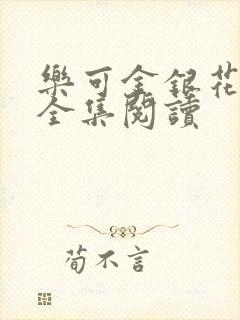 樂可金銀花
全集閱讀
荀不言